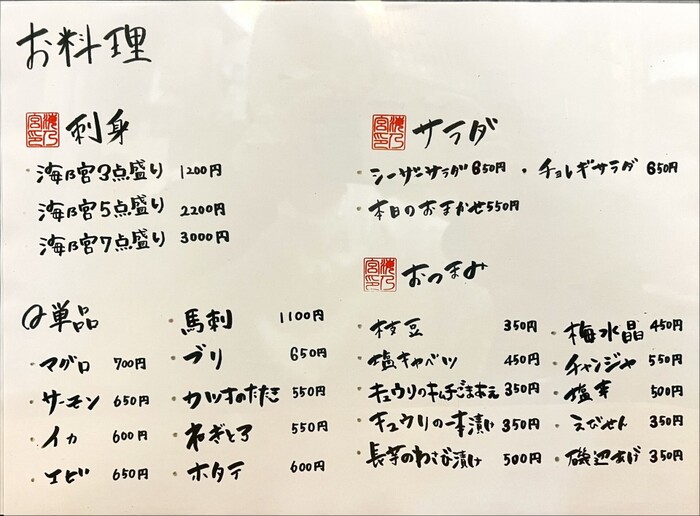 お料理
海乃宮印 刺身
・海乃宮3点盛り 1200円
・海乃宮5点盛り 2200円
・海乃宮7点盛り 3000円
単品
・マグロ 700円
・サーモン 650円
・イカ 600円
・エビ 650円
・馬刺 1100円
・ブリ 650円
・カツオのたたき 550円
・ねぎとろ 550円
・ホタテ 600円
海乃宮印 サラダ
・シーザーサラダ 650円 ・チョレギサラダ 650円
・本日のおまかせ 550円
海乃宮印 おつまみ
・枝豆 350円
・塩キャベツ 450円
・キュウリのキムチごまあえ 350円
・キュウリの一本漬け 350円
・長芋のわさび漬け 500円
・梅水晶 450円
・チャンジャ 550円
・塩辛 500円
・えびせん 350円
・磯辺あげ 350円